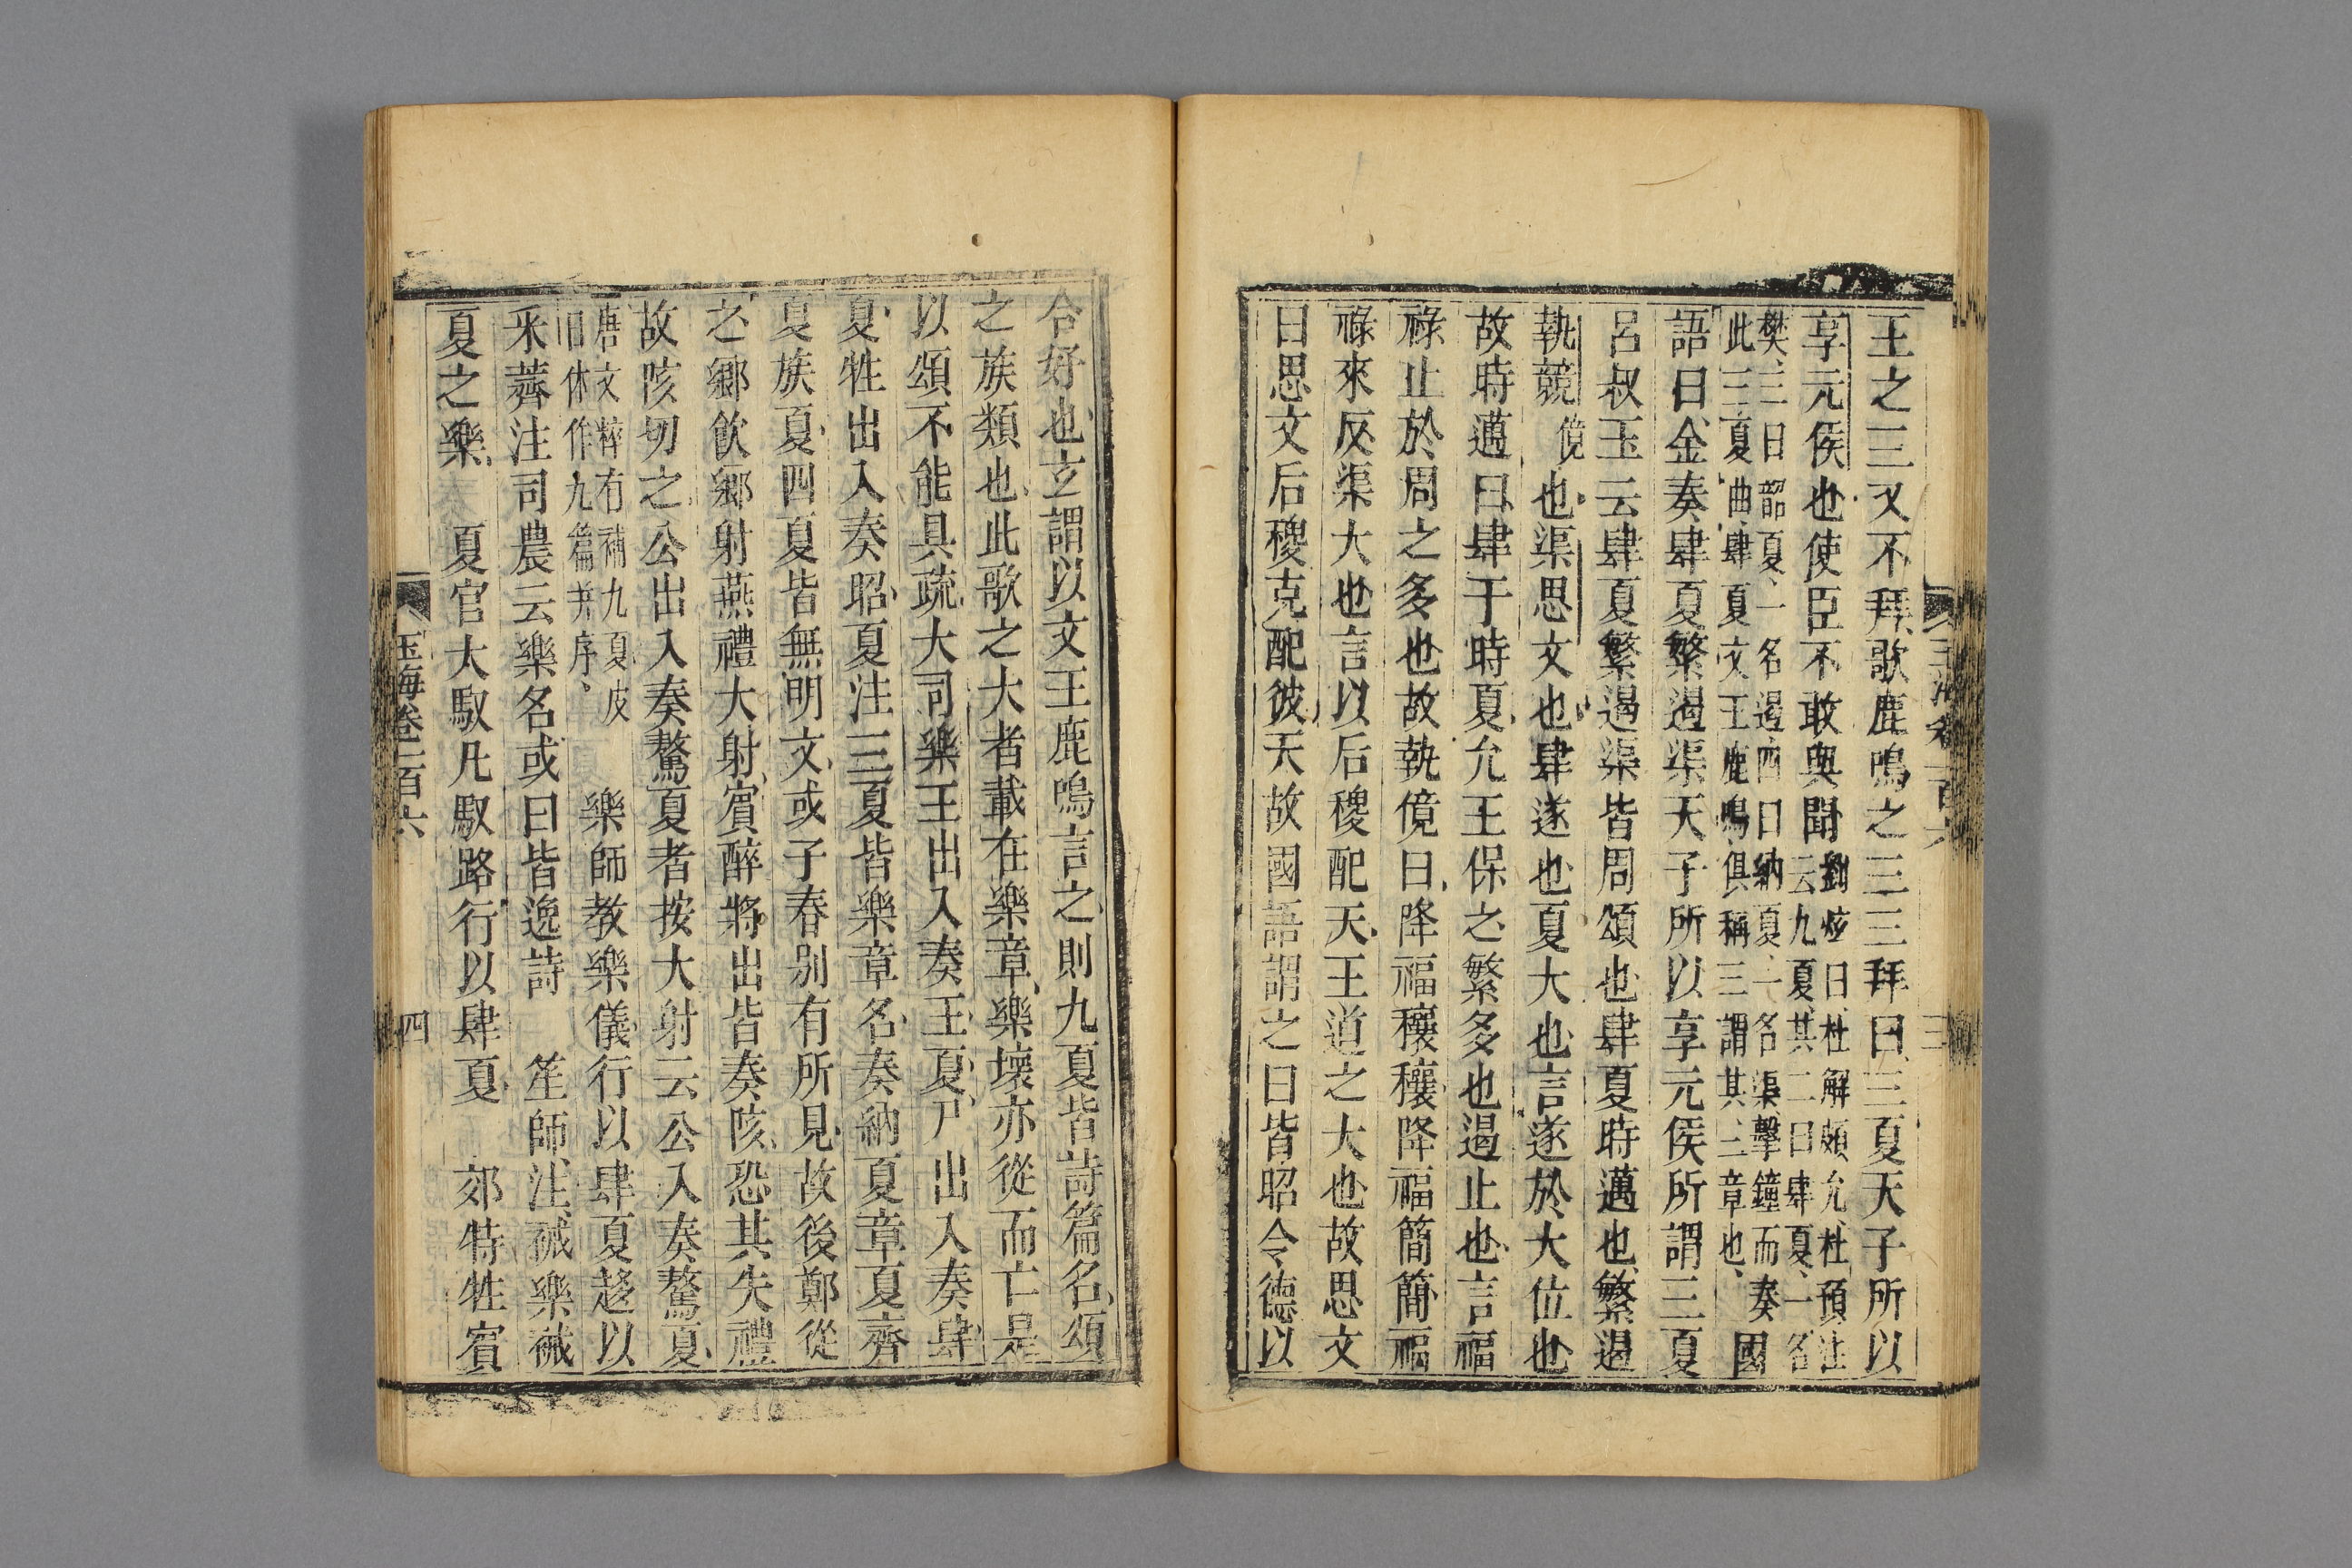 王之三又不拜歌鹿鳴之三三拜曰三夏天子所以
享元侯也使臣不敢與聞劉炫曰杜解頗允杜預注
云九夏其二曰肆夏一名
樊三曰韶夏一名遏四曰納夏一名渠擊鐘而奏
此三夏曲肆夏文王鹿鳴俱稱三謂其三章也國
語曰金奏肆夏繁遏渠天子所以享元侯所謂三夏
呂叔玉云肆夏繁遏渠皆周頌也肆夏時邁也繁遏
執競傹也渠思文也肆遂也夏大也言遂於大位也
故時邁曰肆于時夏允王保之繁多也遏止也言福
祿止於周之多也故執傹曰降福穰穰降福簡簡福
祿來反渠大也言以后稷配天王道之大也故思文
曰思文后稷克配彼天故國語謂之曰皆昭令德以
玉海卷一百六
三
合好也玄謂以文王鹿鳴言之則九夏皆詩篇名頌
之族類也此歌之大者載在樂章樂壞亦從而亡是
以頌不能具疏大司樂王出入奏王夏尸出入奏肆
夏牲出入奏昭夏注三夏皆樂章名奏納夏章夏齊
夏族夏四夏皆無明文或子春別有所見故後鄭從
之鄉飲鄉射燕禮大射賓醉將出皆奏陔恐其失禮
故陔切之公出入奏驁夏者按大射云公入奏驁夏
唐文粹有補九夏皮
日休作九篇并序樂師教樂儀行以肆夏趍以
采薺注司農云樂名或曰皆逸詩　笙師注祴樂祴
夏之樂　夏官太馭凡馭路行以肆夏　郊特牲賓
玉海卷一百六
四